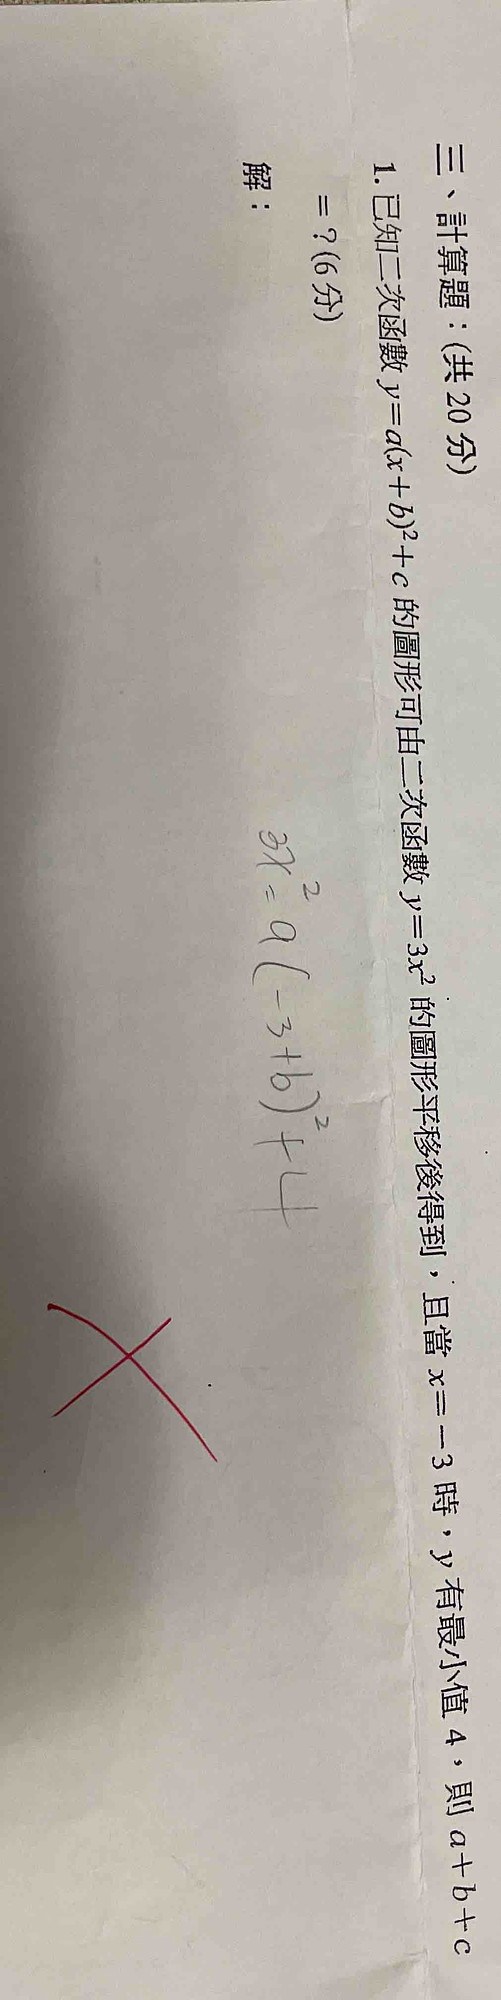 三、計算題：(共 20 分)
1. 已知二次函數 y=a(x+b)²+c 的圖形可由二次函數 y=3x² 的圖形平移後得到，且當 x=－3 時，y 有最小值 4，則 a+b+c
=？(6 分)
解：
3x²=a(-3+b)²+4